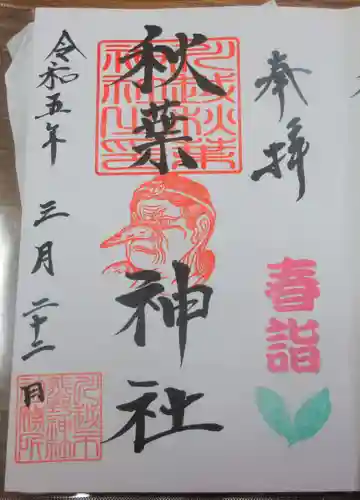 奉拝
春詣
秋葉神社
令和五年三月二十二日